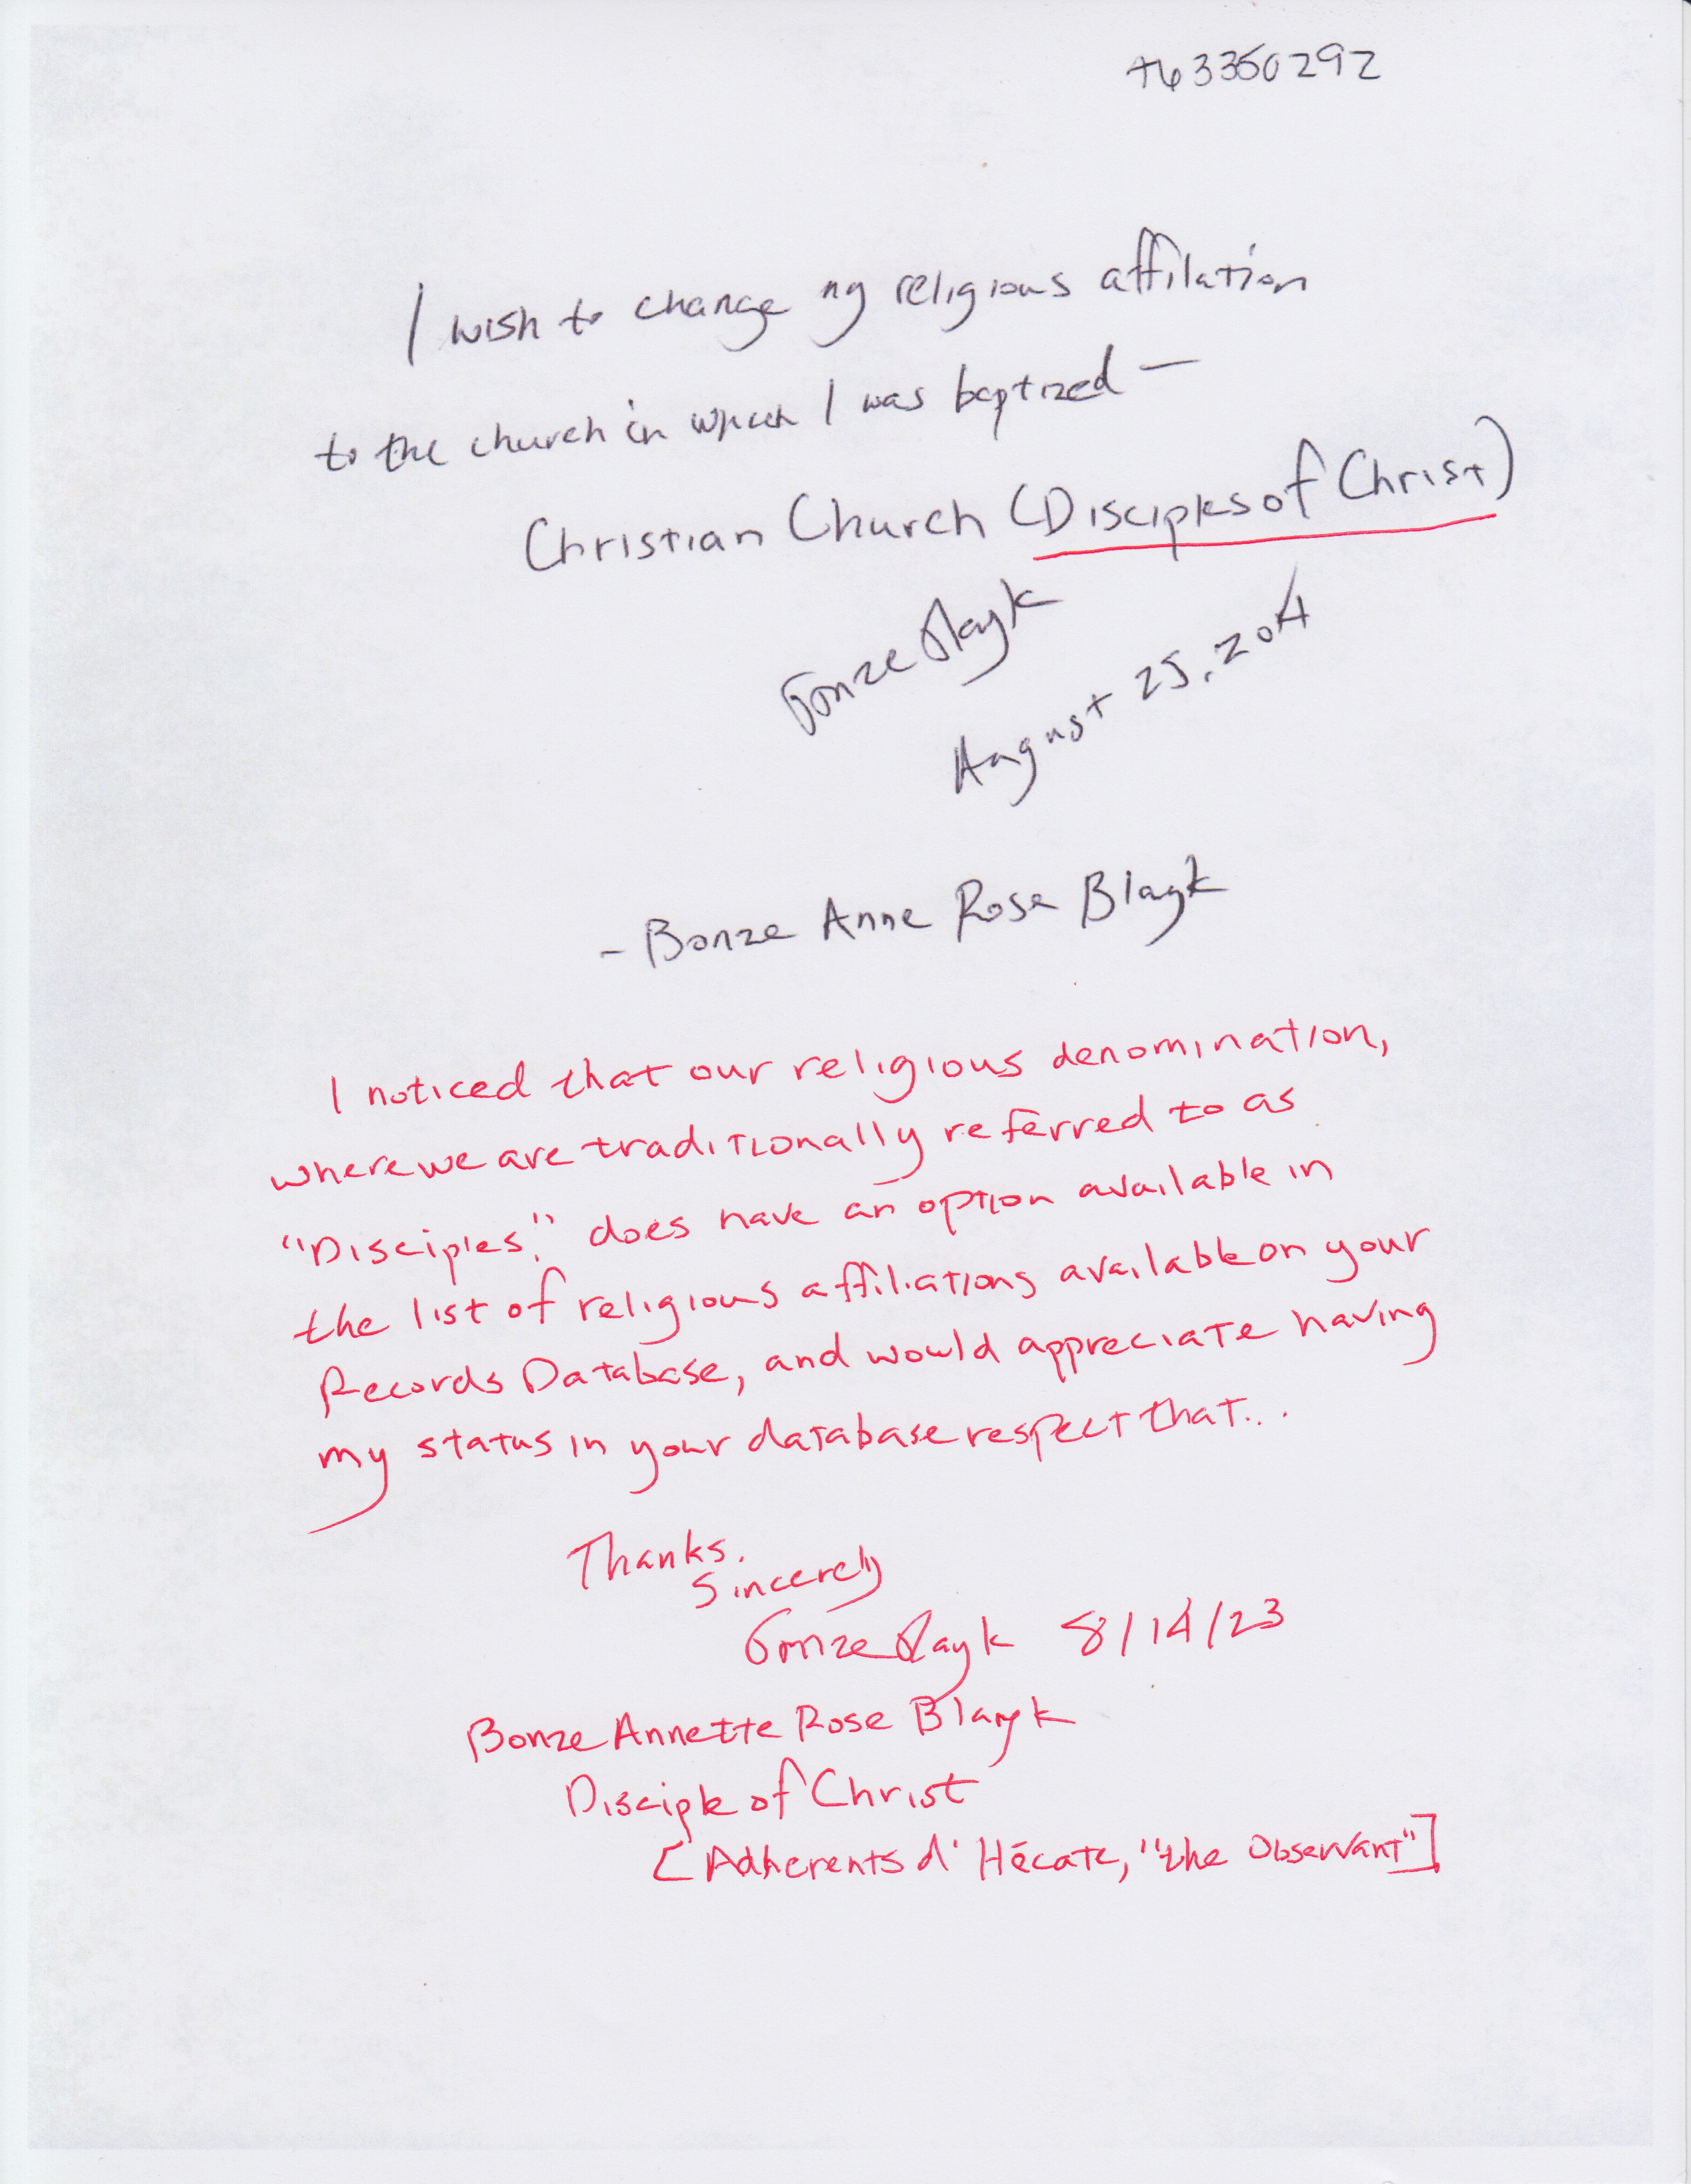 I wish to change my religious affilation
to the church in which I was baptized —
Christian Church (Disciples of Christ)
Bonze Blayk
August 25, 204
- Bonze Anne Rose Blayk
I noticed that our religious denomination,
where we are traditionally referred to as
"Disciples," does have an option available in
the list of religious affiliations available on your
Records Database, and would appreciate having
my status in your database respect that...
Thanks.
Sincerely
Bonze Blayk 8/14/23
Bonze Annette Rose Blayk
Disciple of Christ
[Adherents d' Hécate, "the Observant"]